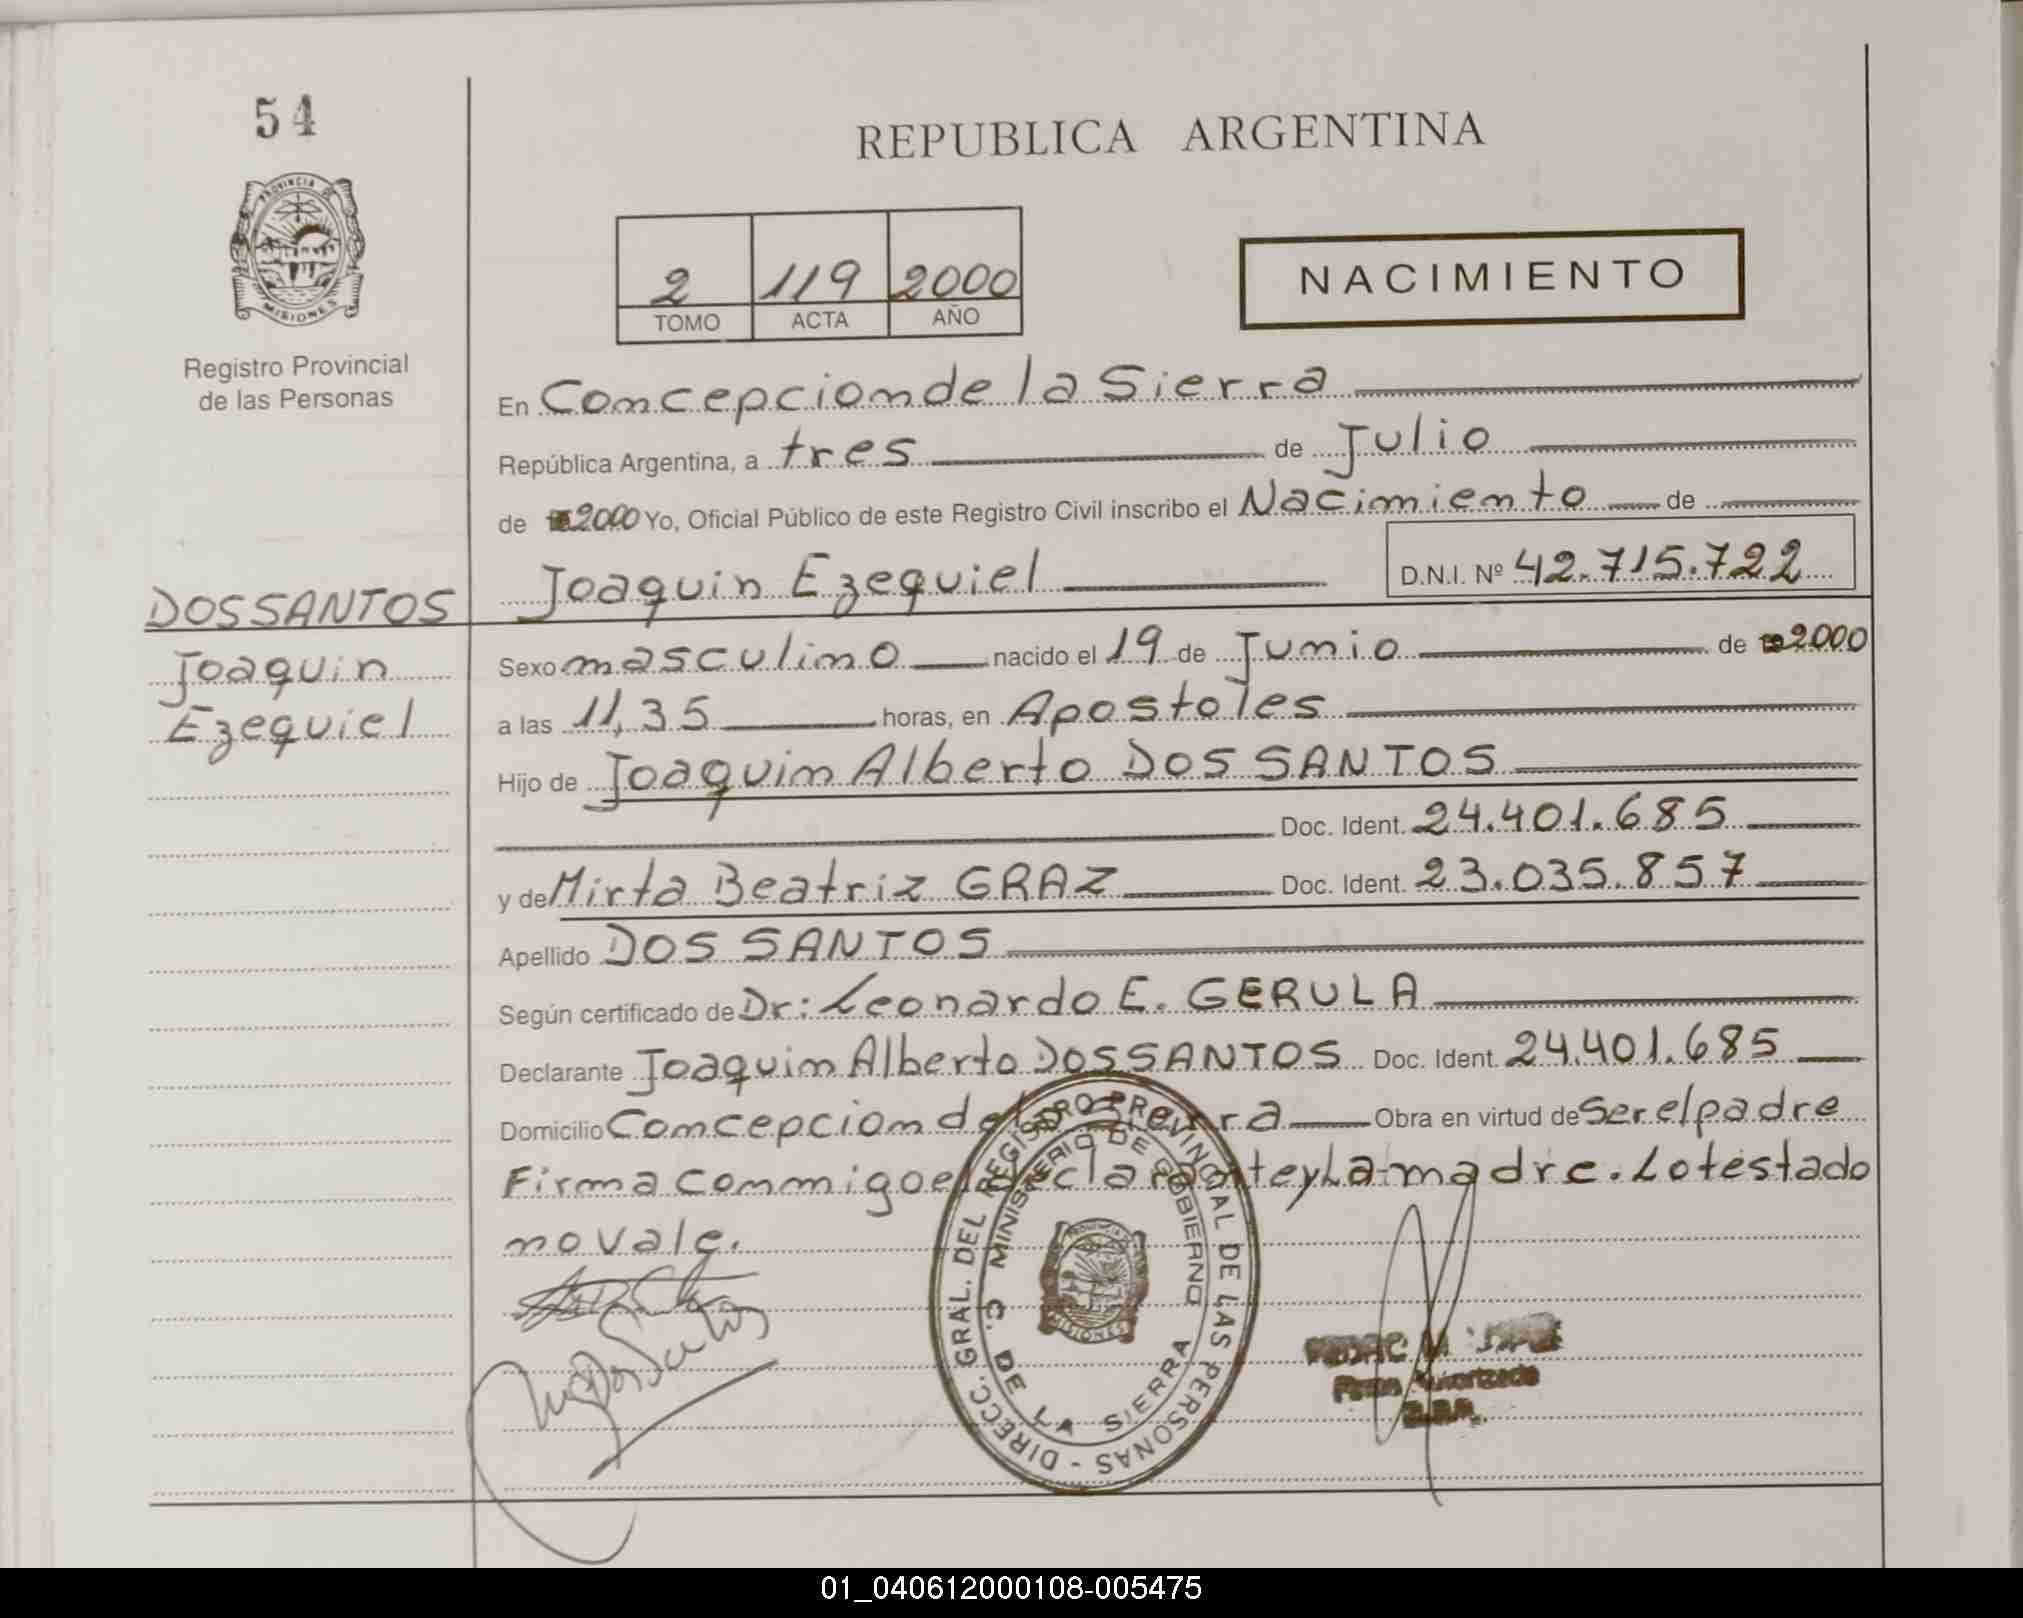 54
REPUBLICA ARGENTINA
PROVINCIA DE
MISIONES
Registro Provincial
de las Personas
2 119 2000
TOMO ACTA AÑO
NACIMIENTO
En Concepcion de la Sierra
República Argentina, a tres de Julio
de 2000 Yo, Oficial Público de este Registro Civil inscribo el Nacimiento de
Joaquin Ezequiel D.N.I. Nº 42.715.722
DOS SANTOS
Joaquin
Ezequiel
Sexo masculino nacido el 19 de Junio de 2000
a las 11,35 horas, en Apostoles
Hijo de Joaquin Alberto DOS SANTOS
Doc. Ident. 24.401.685
y de Mirta Beatriz GRAZ Doc. Ident. 23.035.857
Apellido DOS SANTOS
Según certificado de Dr: Leonardo E. GERULA
Declarante Joaquin Alberto DOS SANTOS Doc. Ident. 24.401.685
Domicilio Concepcion de la Sierra Obra en virtud de Ser el padre
Firma conmigo el declarante y La madre. Lo testado
no vale.
DIRECC. GRAL. DEL REGISTRO PROVINCIAL DE LAS PERSONAS -
MINISTERIO DE GOBIERNO
C. DE LA SIERRA
PROVINCIA
MISIONES
Firma Autorizada
01_040612000108-005475